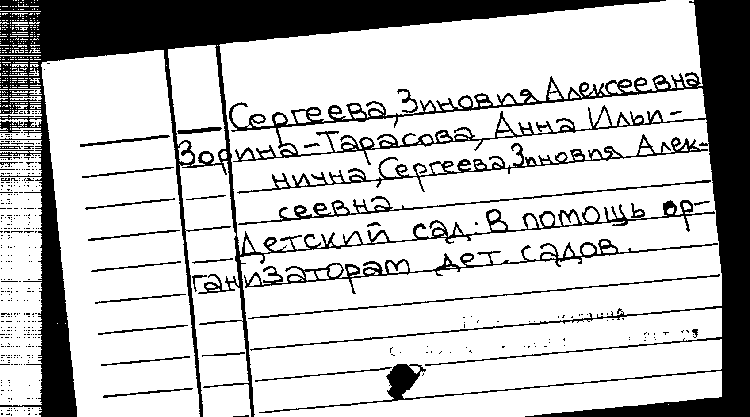 Сергеева, Зиновия Алексеевна
Зорина-Тарасова, Анна Ильи-
нична, Сергеева, Зиновия Алек-
сеевна.
Детский сад: В помощь ор-
ганизаторам дет. садов.